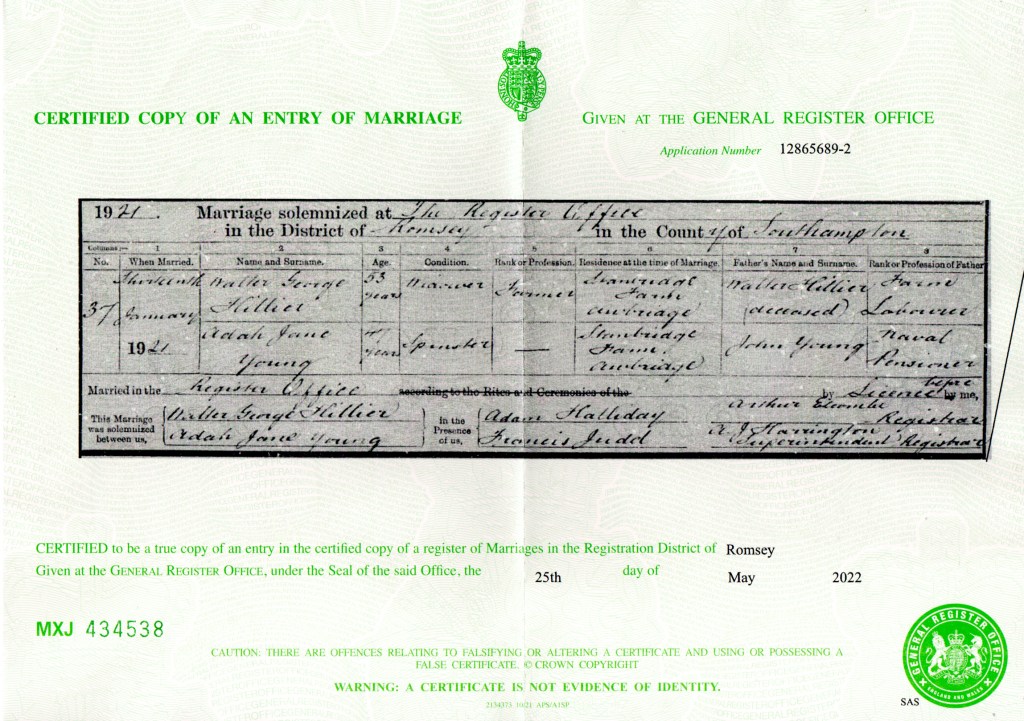 CERTIFIED COPY OF AN ENTRY OF MARRIAGE
GIVEN AT THE GENERAL REGISTER OFFICE
Application Number 12865689-2
1921. Marriage solemnized at The Register Office
in the District of Romsey in the County of Southampton
Columns:— 1 2 3 4 5 6 7 8
No. When Married. Name and Surname. Age. Condition. Rank or Profession. Residence at the time of Marriage. Father's Name and Surname. Rank or Profession of Father
37 Thirteenth January 1921
Walter George Hillier 53 years Widower Farmer Stanbridge Farm Awbridge Walter Hillier (deceased) Farm Labourer
Adah Jane Young years Spinster — Stanbridge Farm. Awbridge John Young Naval Pensioner
Married in the Register Office according to the Rites and Ceremonies of the by Licence before by me,
This Marriage was solemnized between us, Walter George Hillier Adah Jane Young
In the Presence of us, Adam Halliday Francis Judd
Arthur Elcombe Registrar
A. J. Harrington Superintendent Registrar
CERTIFIED to be a true copy of an entry in the certified copy of a register of Marriages in the Registration District of Romsey
Given at the GENERAL REGISTER OFFICE, under the Seal of the said Office, the 25th day of May 2022
MXJ 434538
CAUTION: THERE ARE OFFENCES RELATING TO FALSIFYING OR ALTERING A CERTIFICATE AND USING OR POSSESSING A
FALSE CERTIFICATE. © CROWN COPYRIGHT
WARNING: A CERTIFICATE IS NOT EVIDENCE OF IDENTITY.
GENERAL REGISTER OFFICE
ENGLAND AND WALES
SAS